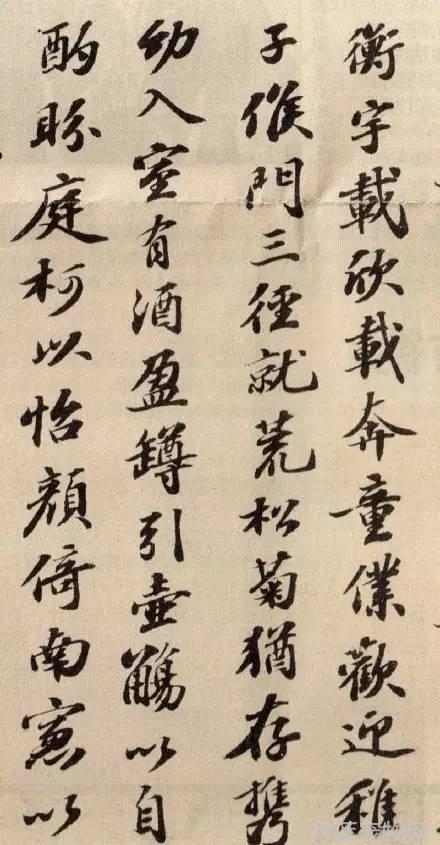 衡宇載欣載奔童僕歡迎稚
子候門三徑就荒松菊猶存携
幼入室有酒盈罇引壺觴以自
酌眄庭柯以怡顏倚南窓以